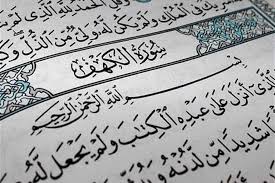 وَقُلِ ٱلْحَمْدُ لِلَّهِ ٱلَّذِى
فِى ٱلْمُلْكِ وَلَمْ يَكُن لَّهُۥ وَلِىٌّ مِّنَ ٱلذُّلِّ
سُورَةُ الكَهْفِ
بِسْمِ ٱللَّهِ ٱلرَّحْمَٰنِ ٱلرَّحِيمِ
أَنزَلَ عَلَىٰ عَبْدِهِ ٱلْكِتَٰبَ وَلَمْ يَجْعَل لَّهُۥ
شَدِيدًا مِّن لَّدُنْهُ